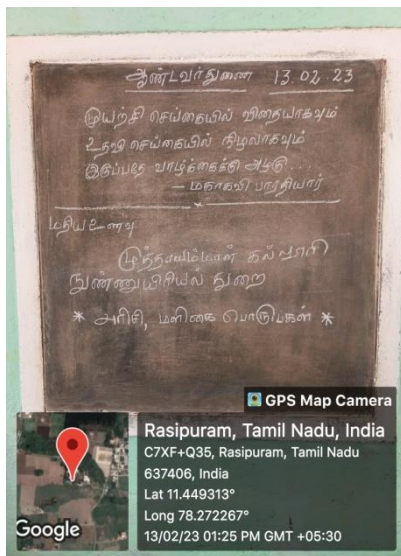 ஆண்டவர் துணை 13.02.23
முயற்சி செய்கையில் விதையாகவும்
உதவி செய்கையில் நிழலாகவும்
இருப்பதே வாழ்க்கைக்கு அழகு...
– மகாகவி பாரதியார்
மதிய உணவு
முத்தாயம்மாள் கல்லூரி
நுண்ணுயிரியல் துறை
* அரிசி, மளிகை பொருட்கள் *
GPS Map Camera
Rasipuram, Tamil Nadu, India
C7XF+Q35, Rasipuram, Tamil Nadu
637406, India
Lat 11.449313°
Long 78.272267°
13/02/23 01:25 PM GMT +05:30
Google